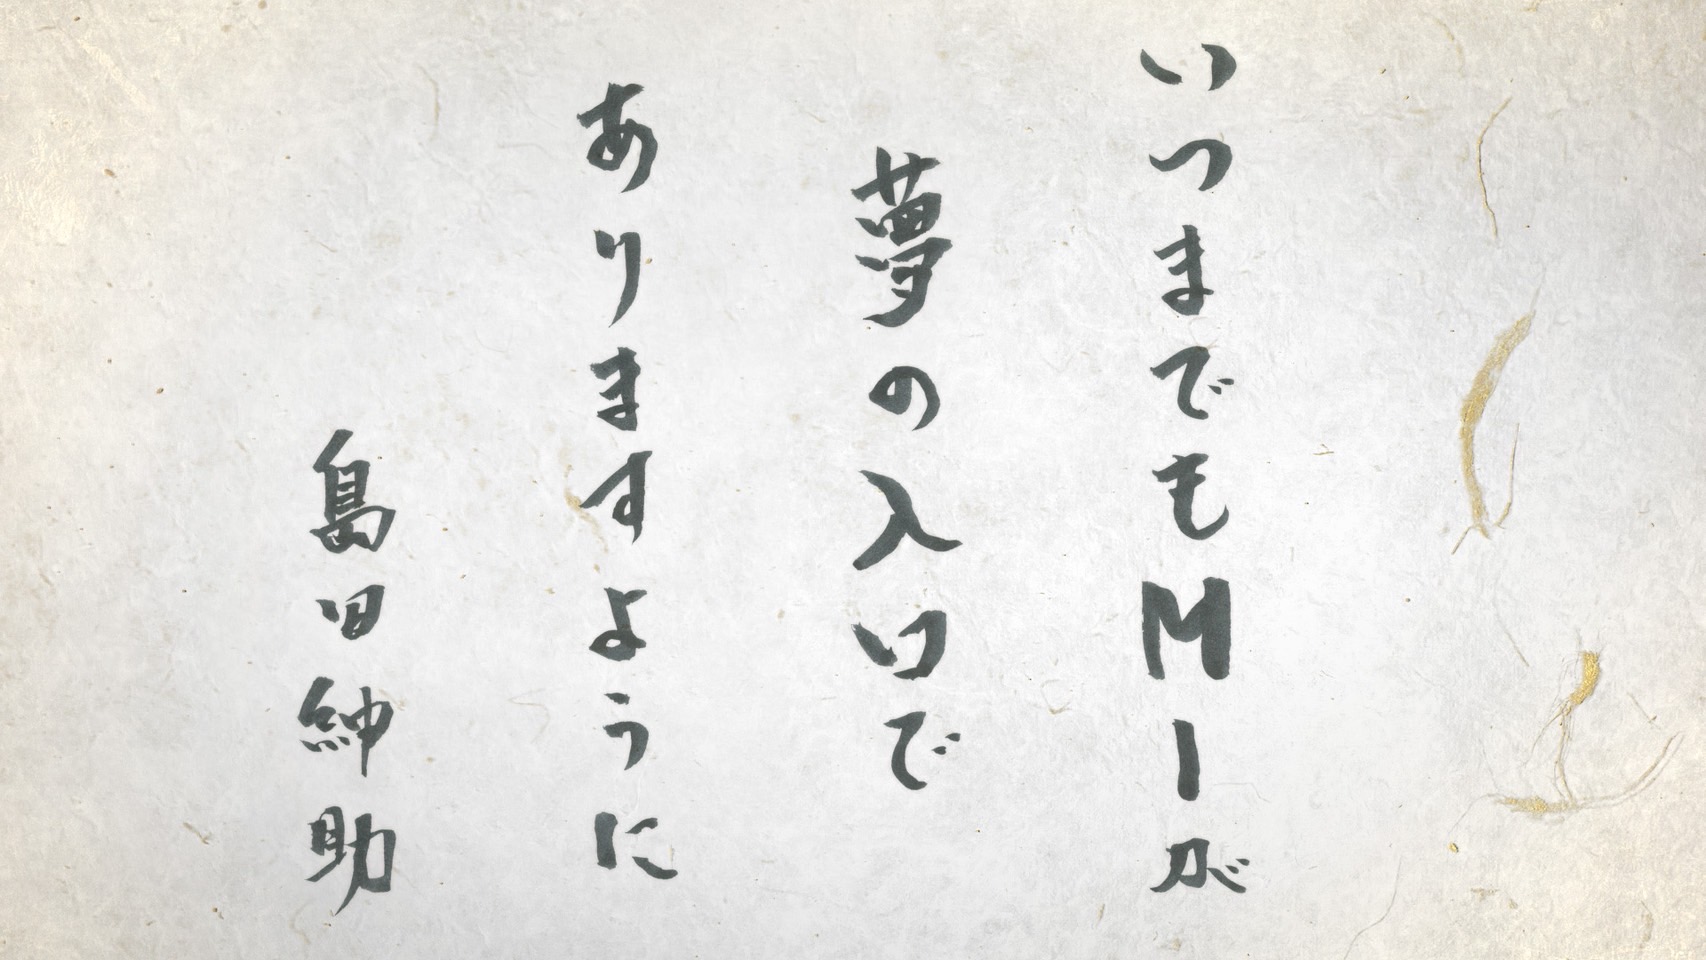 いつまでもM-1が
夢の入口で
ありますように
島田紳助